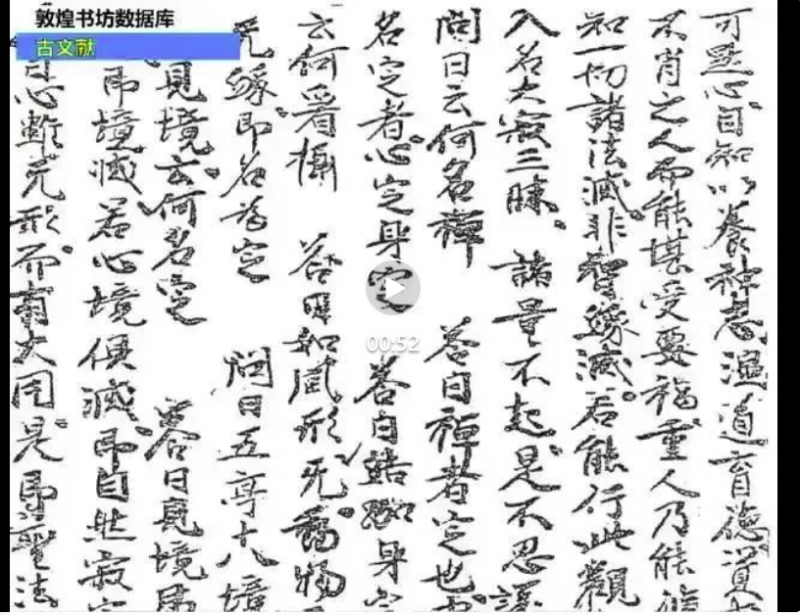 敦煌书坊数据库
古文献
可默心自知以養神志温道育德資
不肖之人而能堪受要福重人乃能
知一切諸法滅非智緣滅若能行此觀
入名大寂三昧 諸量不起是不忍
問曰云何名禪 荅曰禪者定也
名定者心定身定 荅曰結跏身定
云何看攝 荅曰如風形无動物
无緣即名為定 問曰五亭十八境
見境云何名定 荅曰見境即
即境滅若心境俱滅即自然寂
雖无形而有大用是即聖法
00:52